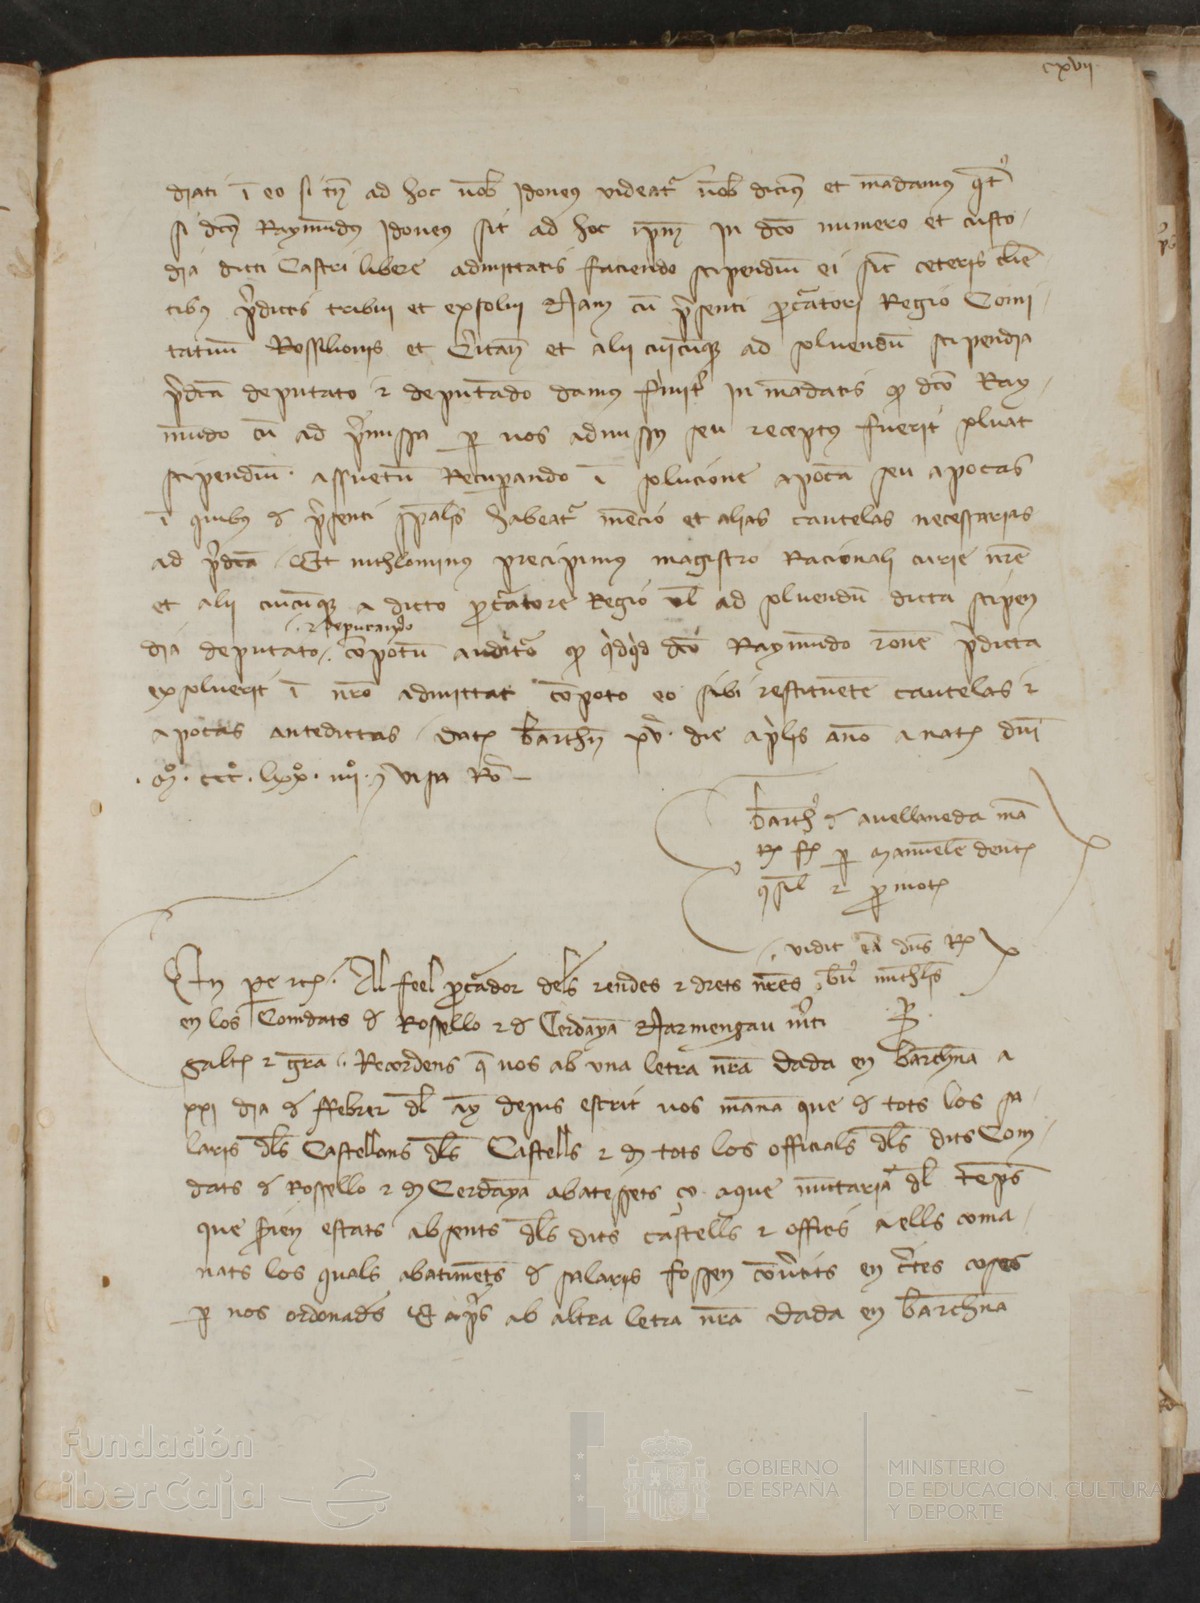 cxvii
diati i eo si tn ad hoc nob ydoneus videat nob dicim et mandamus qt
si dcus Raymundus ydoneus sit ad hoc ipm in dco numero et custo
dia dicti Castri libere admittatis faciendo stipendiu ei sic ceteris clien
tibus pdictis tribui et exsolui Nam cu psenti pcuratori Regio Comi
tatuum Rossilionis et Ceritan et alii cuicumq ad soluendu stipendia
pdca deputato et deputando damus firmit in mandatis q dco Ray
mundo cu ad pmissa p vos admissus seu receptus fuerit soluat
stipendiu assuetu Recupando i solucione apoca seu apocas
i quibus d psenti spalis habeat mencio et alias cautelas necessarias
ad pdca Et nichilominus precipimus magistro Racionali curie nre
et alii cuicumq a dicto pcuratore Regio vl ad soluendu dicta stipen
et deputando
dia deputato compotu auditor q qdqd dco Raymundo rone pdicta
exsoluerit i nro admittat compoto eo sibi restituente cautelas et
apocas antedictas Dat Barchn xv die aplis ano a nat dni
M ccc lxx iiii visa Ro
Barth d avellaneda ma
to fc p Manuele dent
9sil et pmot
vidit ea dns Rx
En pe etc Al feel pcurador dels rendes et drets nres bn michls
en los Comdats d Rossello et d Cerdaya Narmengau mti
p
Salt et gra Recordens q nos ab una letra nra dada en Barchna a
xxi dia d ffebrer dl ay dejus escrit vos mana que d tots los sa
laris dls Castellans dls Castells et d tots los officials dls dits Com
dats d Rossello et d Cerdaya abatessets ço aque muntaria dl temps
que serien estats absents dls dits castells et officis a ells coma
nats los quals abatiments d salaris fossen covertits en ctes coses
p nos ordonades Et aps ab altra letra nra Dada en Barchna
Fundación
iberCaja
GOBIERNO
DE ESPAÑA
MINISTERIO
DE EDUCACIÓN, CULTURA
Y DEPORTE